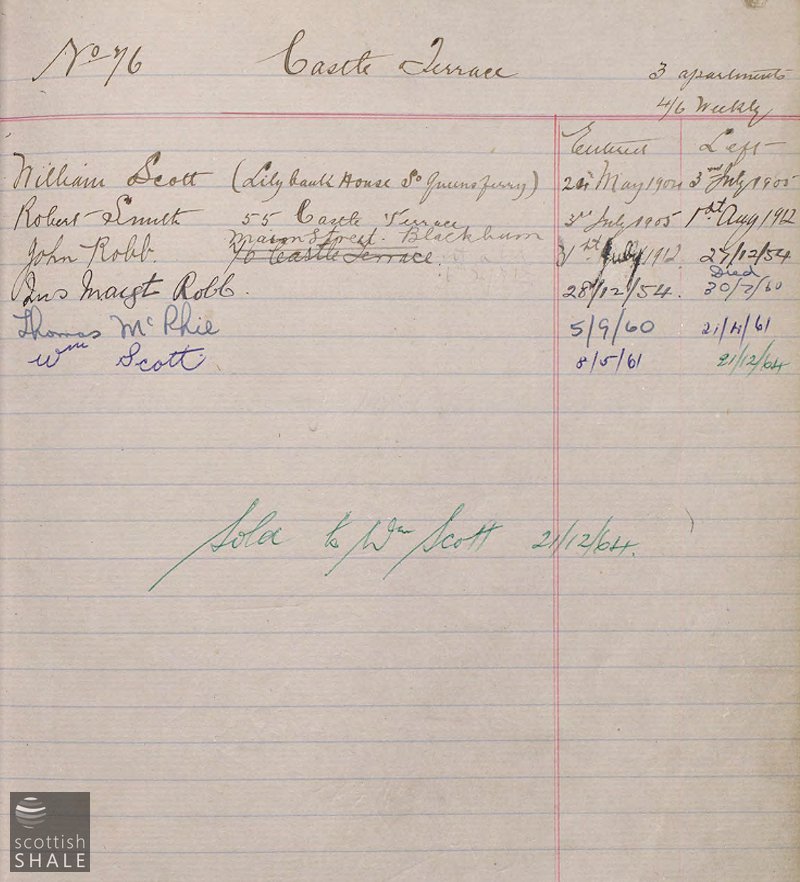 No 76 Castle Terrace 3 apartments
4/6 Weekly
Entered Left
William Scott (Lilybank House So Queensferry) May 1904 3rd July 1905
Robert Smith 55 Castle Terrace 3rd July 1905 1st Aug 1912
John Robb. Main Street. Blackburn 31st July 1912 27/12/54
76 Castle Terrace.
Died
Margt Robb. 28/12/54. 30/7/60
Thomas McPhie 5/9/60 21/4/61
Wm Scott. 8/5/61 21/12/64
Sold to Wm Scott 21/12/64.
scottish
SHALE